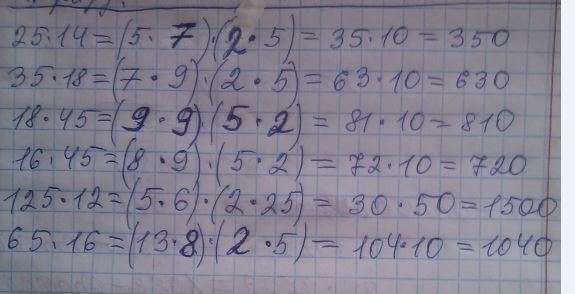 25·14=(5·7)·(2·5)=35·10=350
35·18=(7·9)·(2·5)=63·10=630
18·45=(9·9)·(5·2)=81·10=810
16·45=(8·9)·(5·2)=72·10=720
125·12=(5·6)·(2·25)=30·50=1500
65·16=(13·8)·(2·5)=104·10=1040